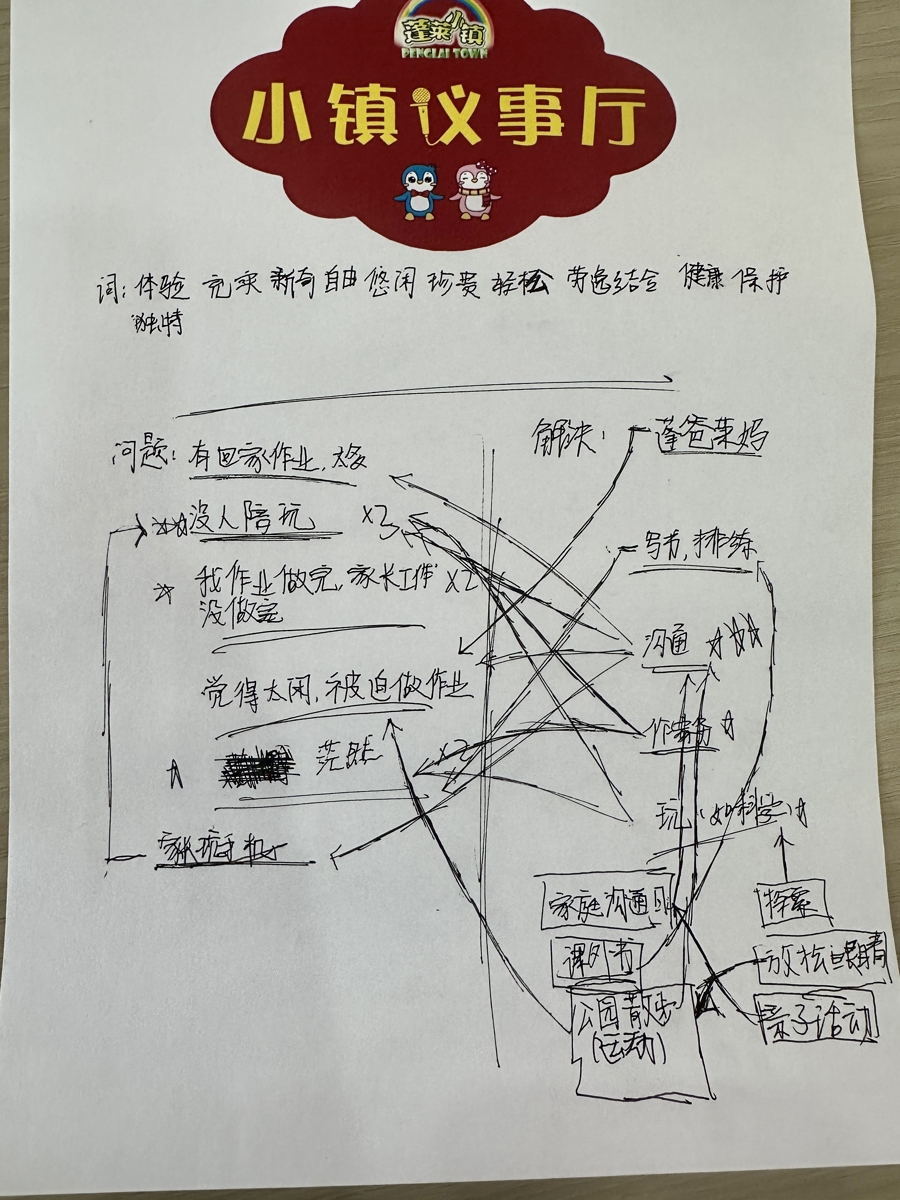 蓬莱小镇
PENGLAI TOWN
小镇议事厅
词：体验 充实 新奇 自由 悠闲 珍贵 轻松 劳逸结合 健康 保护
独特
问题：有回家作业，太多
没人陪玩 ×3
我作业做完，家长工作 ×2
没做完
觉得太闲，被迫做作业
茫然 ×2
玩手机
解决：
蓬爸莱妈
写书，排练
沟通
玩（如科学）
家庭沟通日
课外书
公园散步
（运动）
探索
放松眼睛
亲子活动